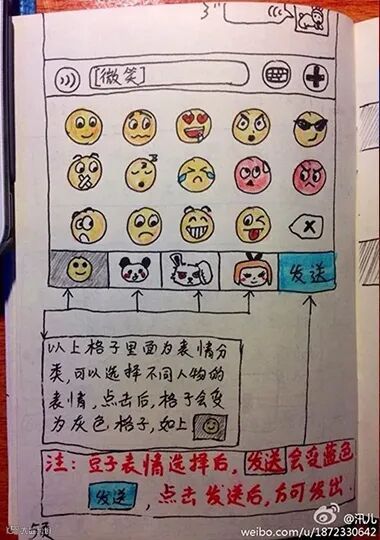 [微笑]
发送
以上格子里面为表情分
类,可以选择不同人物的
表情,点击后,格子会变
为灰色格子,如上
注:豆子表情选择后,发送会变蓝色
发送,点击发送后,方可发出.
@汛儿
weibo.com/u/1872330642